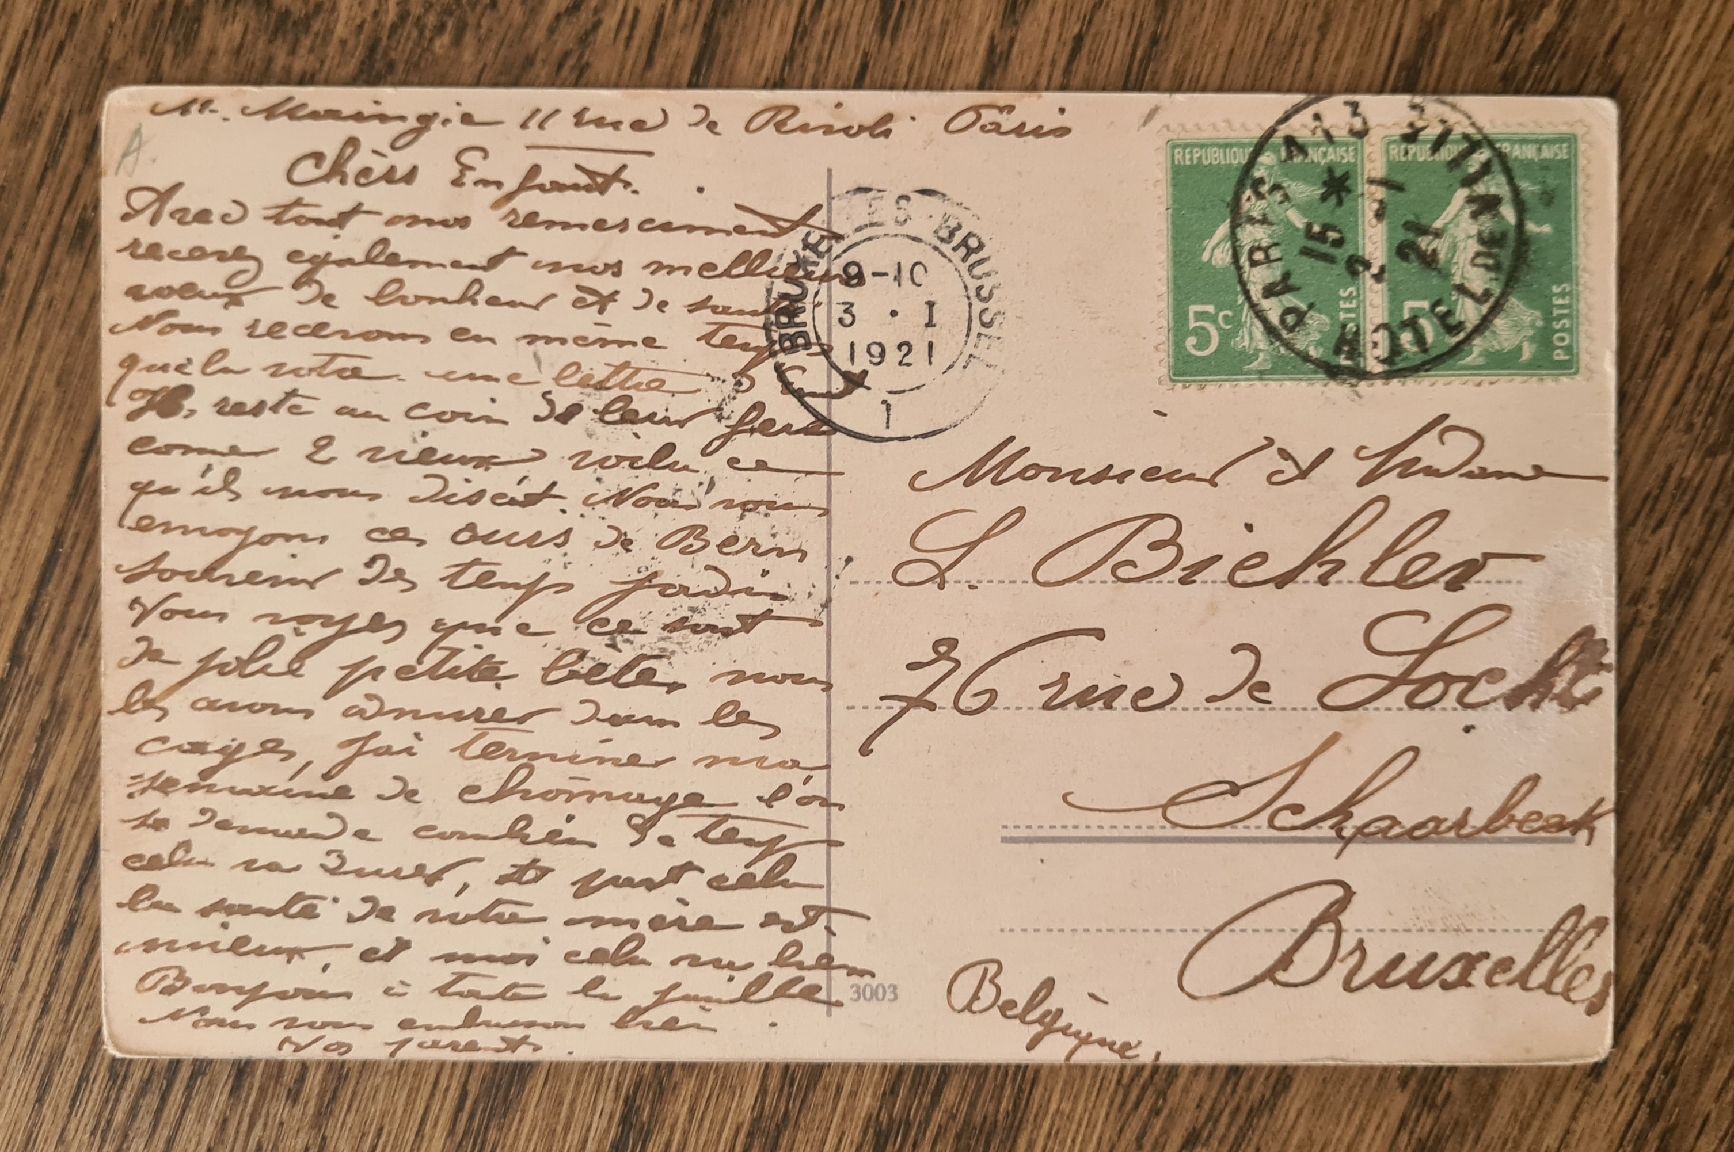 Mr. Maingie 11 rue de Rivoli Paris
Chèrs Enfant.
Avec tout nos remerciment
recevez egalement nos mellieur
voeux de bonheur et de santé
Nous recevons en même temps
que la votre une lettre
reste au coin de leur feux
come 2 vieux voila ce
qu'ils nous diseit. Nous vous
envoyons ces ours de Bern
souvenir des temps jadis
Vous voyez que ce sont
de jolie petite bete, nous
les avons admirer dans les
cages, jai terminer ma
semaine de chômage l'on
se demande combien de temp
cela va durer, et part cela
la santé de votre mère est
mieux, et moi cela va bien
Bonjour à toute la famille
Nous vous embrasson bien
Vos parents.
3003
Monsieur et Madame
L. Bichler
76 rue de Locht
Schaarbeek
Bruxelles
Belgique,
BRUXELLES · BRUSSEL
9-10
3 · I
1921
1
RÉPUBLIQUE FRANÇAISE
5c
POSTES
RÉPUBLIQUE FRANÇAISE
5c
POSTES
PARIS A 13 HOTEL DE VILLE
15 *
2 - 1
21
A.